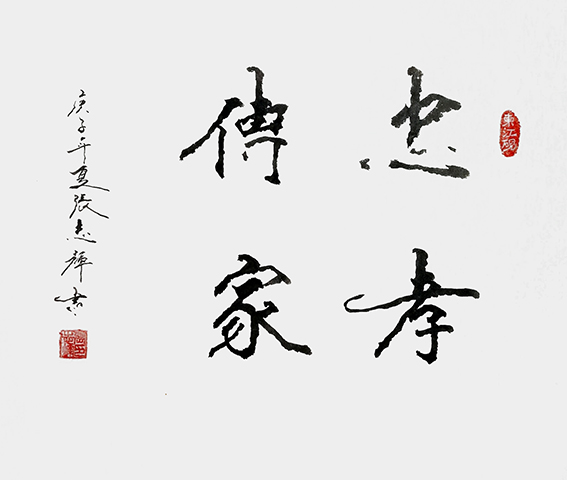 忠孝
傳家
庚子年夏張志輝書
東江硯